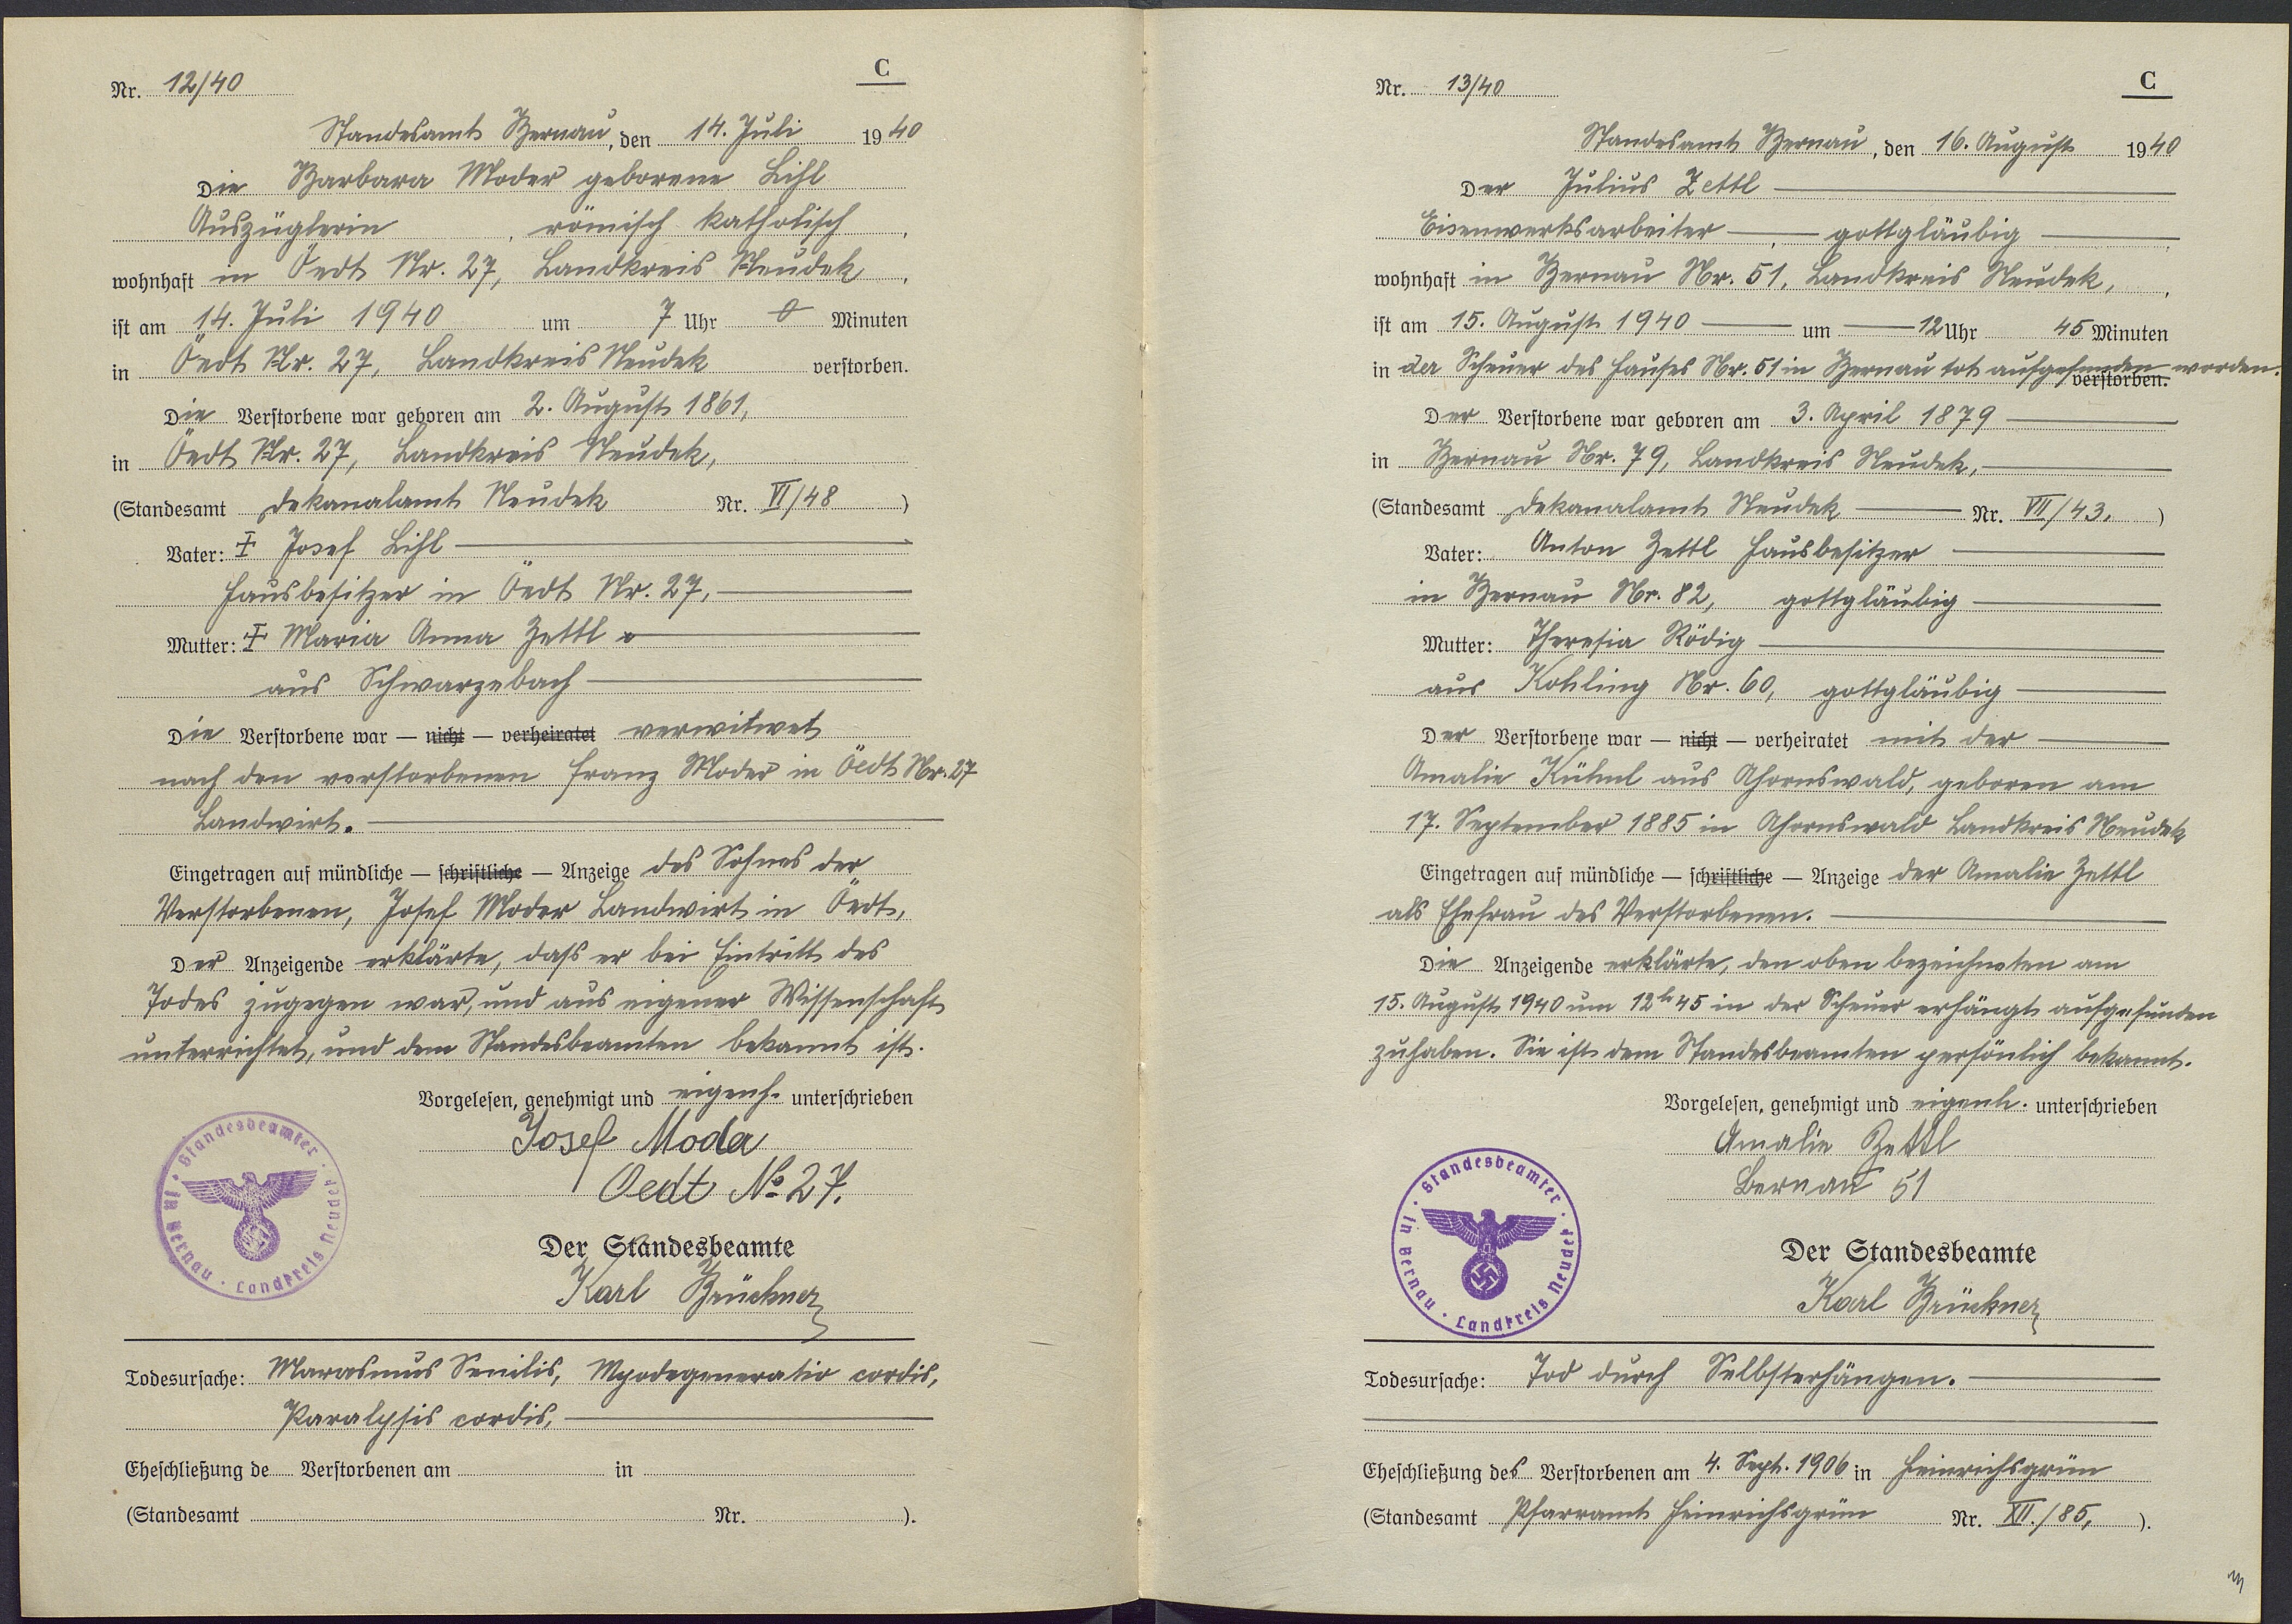 Nr. 12/40
C
Standesamt Bernau, den 14. Juli 1940
Die Barbara Moder geborene Lihl
Auszüglerin, römisch katholisch,
wohnhaft in Öedt Nr. 27, Landkreis Neudek,
ist am 14. Juli 1940 um 7 Uhr 0 Minuten
in Öedt Nr. 27, Landkreis Neudek verstorben.
Die Verstorbene war geboren am 2. August 1861,
in Öedt Nr. 27, Landkreis Neudek,
(Standesamt Dekanalamt Neudek Nr. VI/48)
Vater: ‡ Josef Lihl
Hausbesitzer in Öedt Nr. 27,
Mutter: ‡ Maria Anna Zettl
aus Schwarzebach
Die Verstorbene war — nicht — verheiratet verwitwet
nach den verstorbenen Franz Moder in Öedt Nr. 27
Landwirt.
Eingetragen auf mündliche — schriftliche — Anzeige des Sohnes der
Verstorbenen, Josef Moder Landwirt in Öedt,
Der Anzeigende erklärte, dass er bei Eintritt des
Todes zugegen war, und aus eigener Wissenschaft
unterrichtet, und dem Standesbeamten bekannt ist.
Vorgelesen, genehmigt und eigenh. unterschrieben
Josef Moder
Oedt No 27.
Standesbeamter · in Bernau · Landkreis Neudek
Der Standesbeamte
Karl Brückner
Todesursache: Marasmus Senilis, Myodegeneratio cordis,
Paralysis cordis,
Eheschließung de Verstorbenen am in
(Standesamt Nr. ).
Nr. 13/40
C
Standesamt Bernau, den 16. August 1940
Der Julius Zettl
Eisenwerksarbeiter, gottgläubig
wohnhaft in Bernau Nr. 51, Landkreis Neudek,
ist am 15. August 1940 um 12 Uhr 45 Minuten
in der Scheuer des Hauses Nr. 51 in Bernau tot aufgefunden worden.
verstorben.
Der Verstorbene war geboren am 3. April 1879
in Bernau Nr. 79, Landkreis Neudek,
(Standesamt Dekanalamt Neudek Nr. VII/43.)
Vater: Anton Zettl Hausbesitzer
in Bernau Nr. 82, gottgläubig
Mutter: Theresia Rödig
aus Kohling Nr. 60, gottgläubig
Der Verstorbene war — nicht — verheiratet mit der
Amalie Kühnl aus Ahornswald, geboren am
17. September 1885 in Ahornswald Landkreis Neudek
Eingetragen auf mündliche — schriftliche — Anzeige der Amalie Zettl
als Ehefrau des Verstorbenen.
Die Anzeigende erklärte, den oben bezeichneten am
15. August 1940 um 12h 45 in der Scheuer erhängt aufgefunden
zuhaben. Sie ist dem Standesbeamten persönlich bekannt.
Vorgelesen, genehmigt und eigenh. unterschrieben
Amalie Zettl
Bernau 51
Standesbeamter · in Bernau · Landkreis Neudek
Der Standesbeamte
Karl Brückner
Todesursache: Tod durch Selbsterhängen.
Eheschließung des Verstorbenen am 4. Sept. 1906 in Heinrichsgrün
(Standesamt Pfarramt Heinrichsgrün Nr. XII./85,).